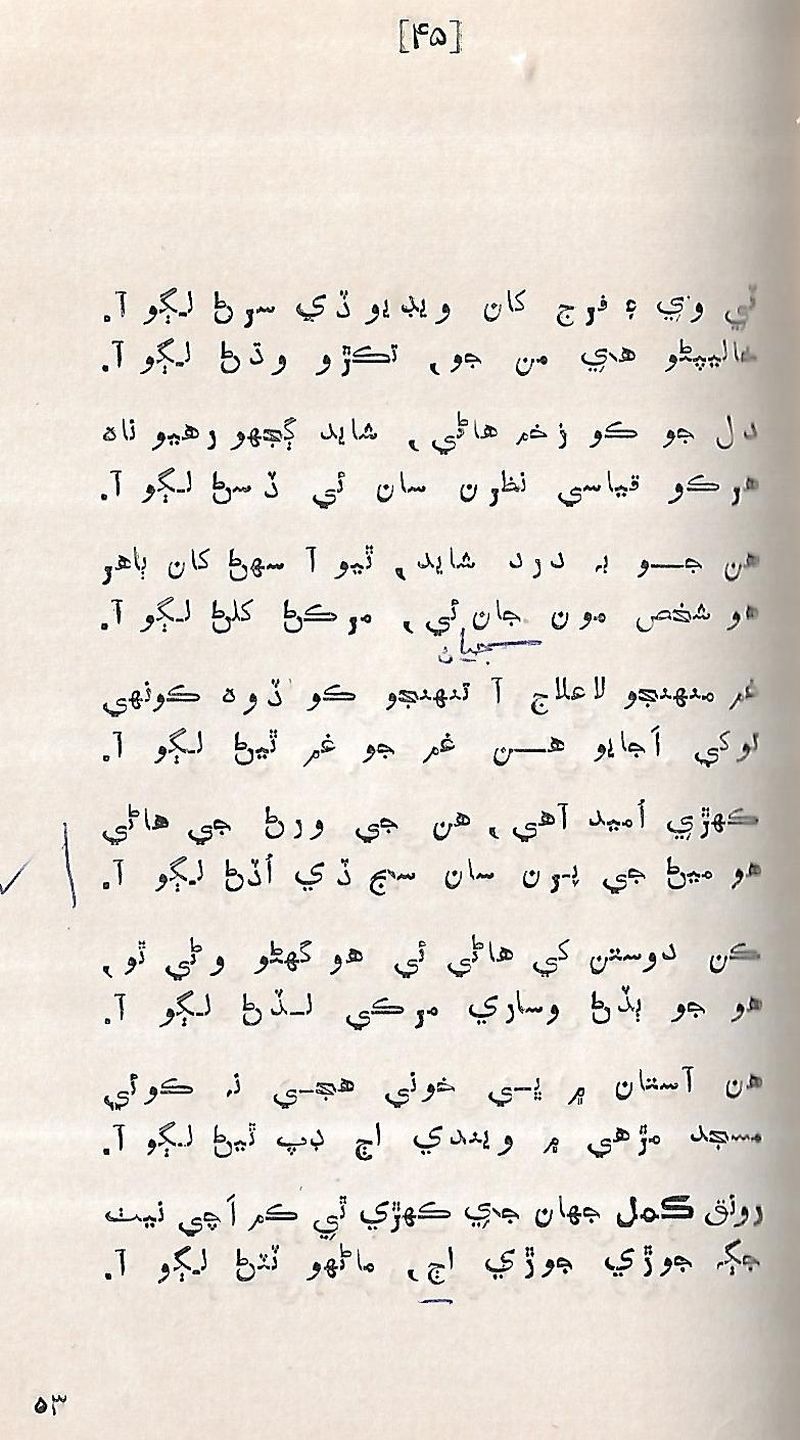 [۴۵]
ٽي وي ۽ فرج کان ويڊيو ڏي سرڻ لڳو آ.
خاليپڻو هي من جو، تڪڙو وڌڻ لڳو آ.
دل جو ڪو زخم هاڻي، شايد ڳجهو رهيو ناه
هر ڪو قياسي نظرن سان ئي ڏسڻ لڳو آ.
هن جو به درد شايد، ٿيو آ سهڻ کان ٻاهر
هو شخص مون جان ئي، مرڪڻ کلڻ لڳو آ.
جيان
غم منهنجو لاعلاج آ تنهنجو ڪو ڏوه ڪونهي
لوکي اجايو هن غم جو غم ٿيڻ لڳو آ.
ڪهڙي اُميد آهي، هن جي ورڻ جي هاڻي
هو ميڻ جي پرن سان سج ڏي اُڏڻ لڳو آ.
ڪن دوستن کي هاڻي ئي هو گهڻو وڻي ٿو،
هو جو ٻڏڻ وساري مرڪي لڏڻ لڳو آ.
هن آستان ۾ ڀي خوني هجي نه ڪوئي
مسجد مڙهي ۾ ويندي اڄ ڊپ ٿيڻ لڳو آ.
رونق ڪمل جهان جي ڪهڙي ٿي ڪم اَچي نيٺ
جڳه جوڙي جوڙي اڄ، ماڻهو ٽٽڻ لڳو آ.
۵۳